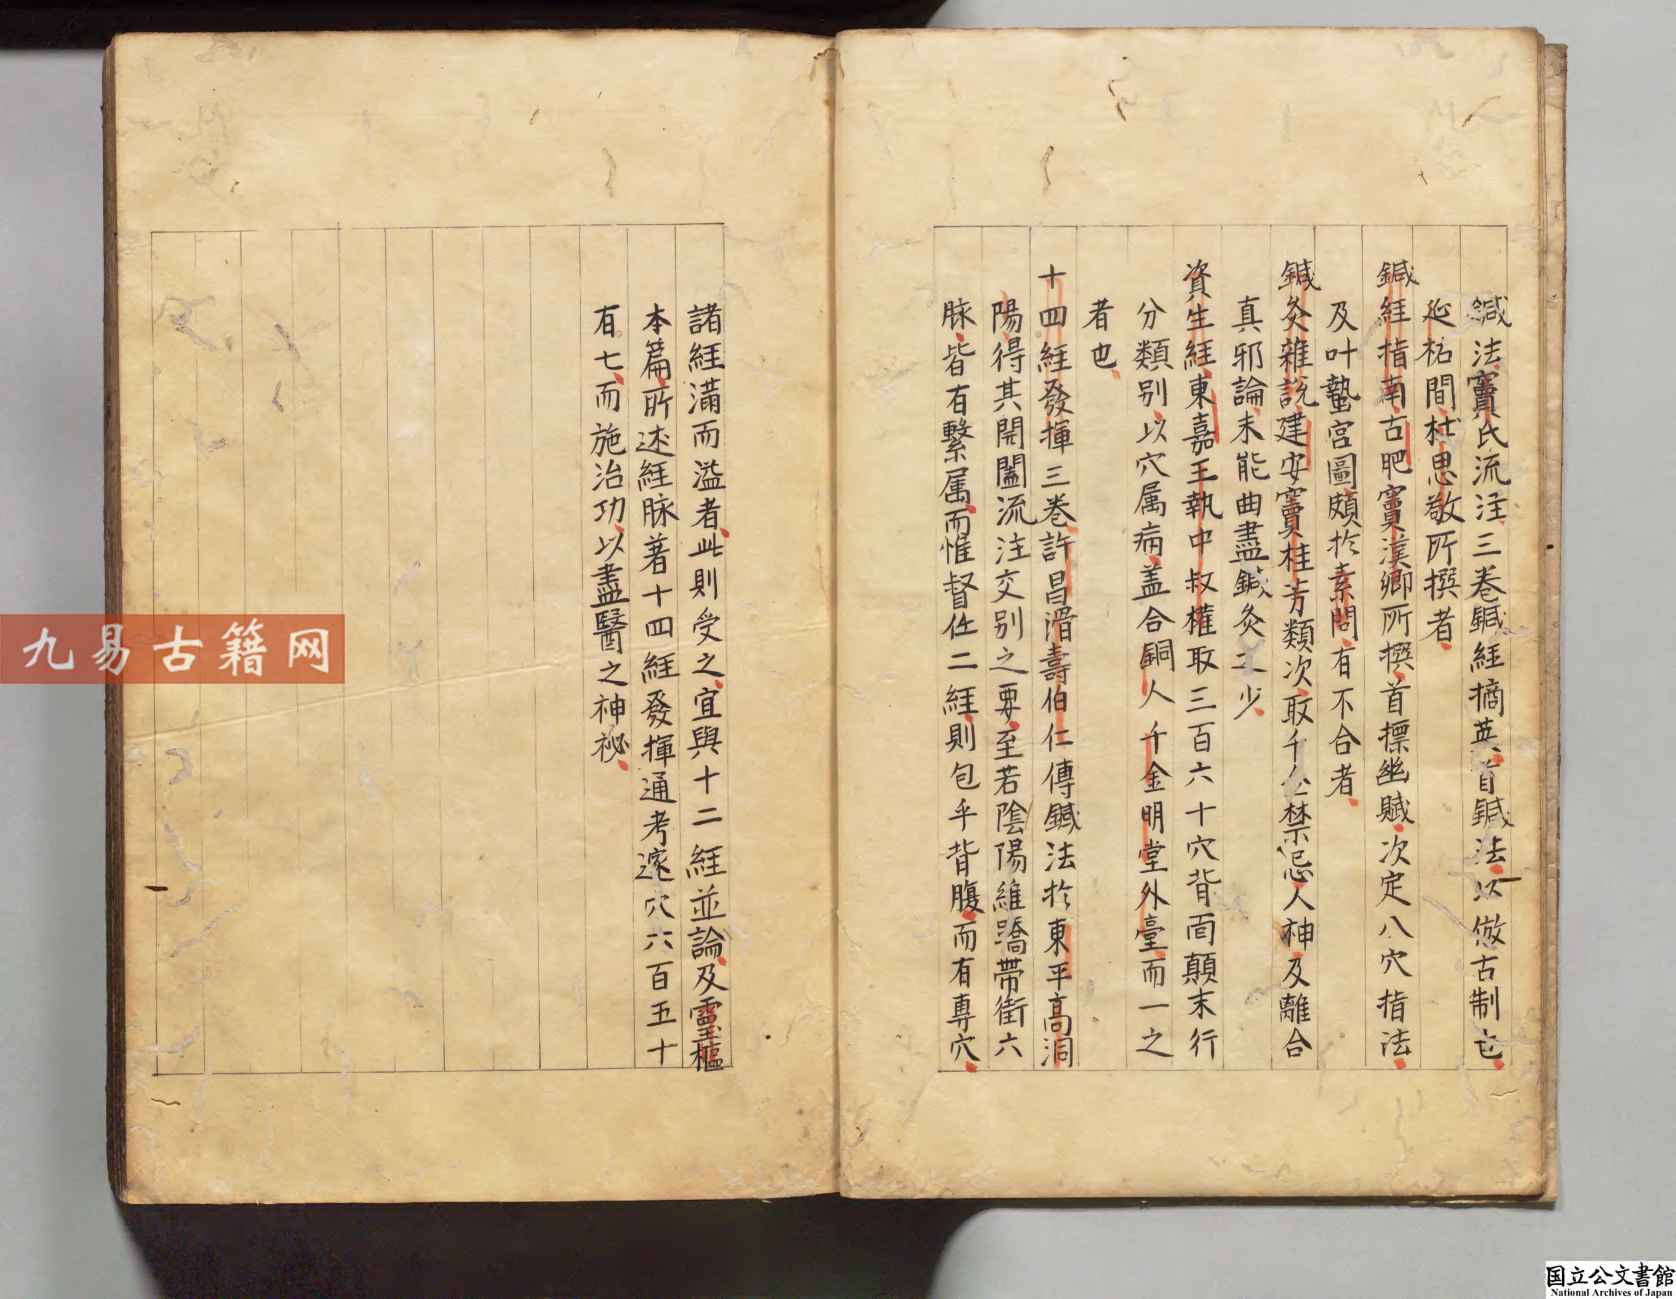 鍼法竇氏流注三卷鍼経摘英首鍼法以倣古制也
延祐間杜思敬所撰者
鍼経指南古肥竇漢卿所撰首摽幽賦次定八穴指法
及叶蟄宮圖頗於素問有不合者
鍼灸雜說建安竇桂芳類次取千金禁忌人神及離合
真邪論未能曲盡鍼灸之少
資生経東嘉王執中叔權取三百六十穴背面顛末行
分類別以穴属病盖合銅人千金明堂外臺而一之
者也
十四経發揮三卷許昌滑壽伯仁傳鍼法於東平高洞
陽得其開闔流注交別之要至若陰陽維蹻帶衝六
脉皆有繫属而惟督任二経則包乎背腹而有專穴
諸経滿而溢者此則受之宜與十二経並論及靈樞
本篇所述経脉著十四経發揮通考邃穴六百五十
有七而施治功以盡醫之神祕
九易古籍网
国立公文書館
National Archives of Japan